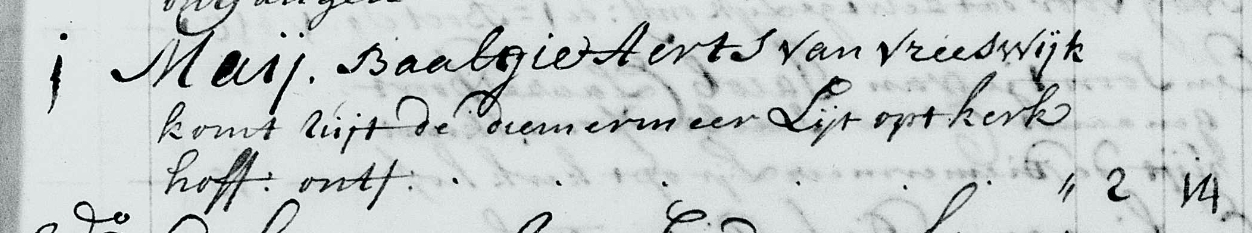 ontfangen
j Maij. Baalgie Aerts van vreeswijk
komt uijt de diemermeer Lijt opt kerk
hoff: ontf: . . . . . . " 2 14